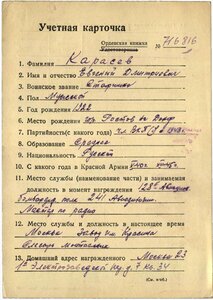 Учетная карточка
Орденская книжка № 716816
Удостоверение
1. Фамилия Карасев
2. Имя и отчество Евгений Дмитриевич
3. Воинское звание Старшина
4. Пол Мужской
5. Год рождения 1922
6. Место рождения Ростов на Дону
7. Партийность (с какого года) чл. ВКП(б) с
8. Образование Среднее
9. Национальность Русский
10. С какого года в Красной Армии
11. Место службы (наименование части) и занимаемая
должность в момент награждения 128
Бомбардир. полк 241 Авиадивизии
по радио
12. Место службы и должность в настоящее время
Москва Завод им.
Слесарь
13. Домашний адрес награжденного Москва Е-23
Электрозаводская ул. д. 7 кв. 34
(См. н/об.)